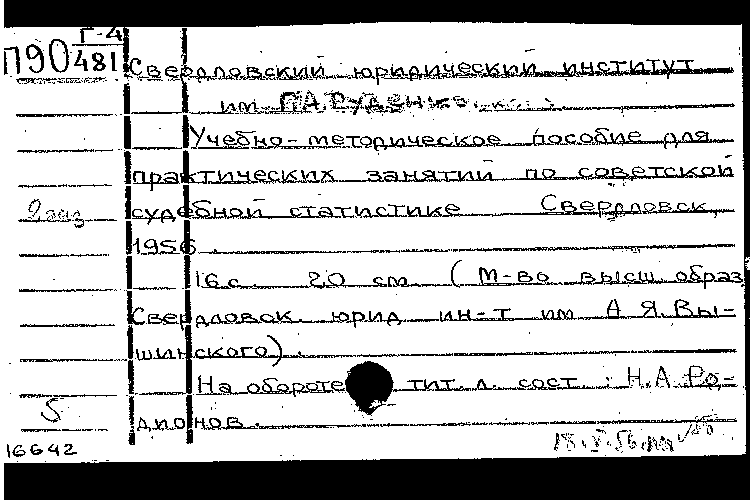 Г-4
П90 481
Свердловский юридический институт
им. Р.А. Руденко
Учебно-методическое пособие для
практических занятий по советской
2 экз судебной статистике Свердловск,
1956.
16 с. 20 см. (М-во высш. образ
Свердловск. юрид ин-т им А Я. Вы-
шинского).
На обороте тит. л. сост.: Н.А. Ро-
дионов.
5
16642
18.V.56